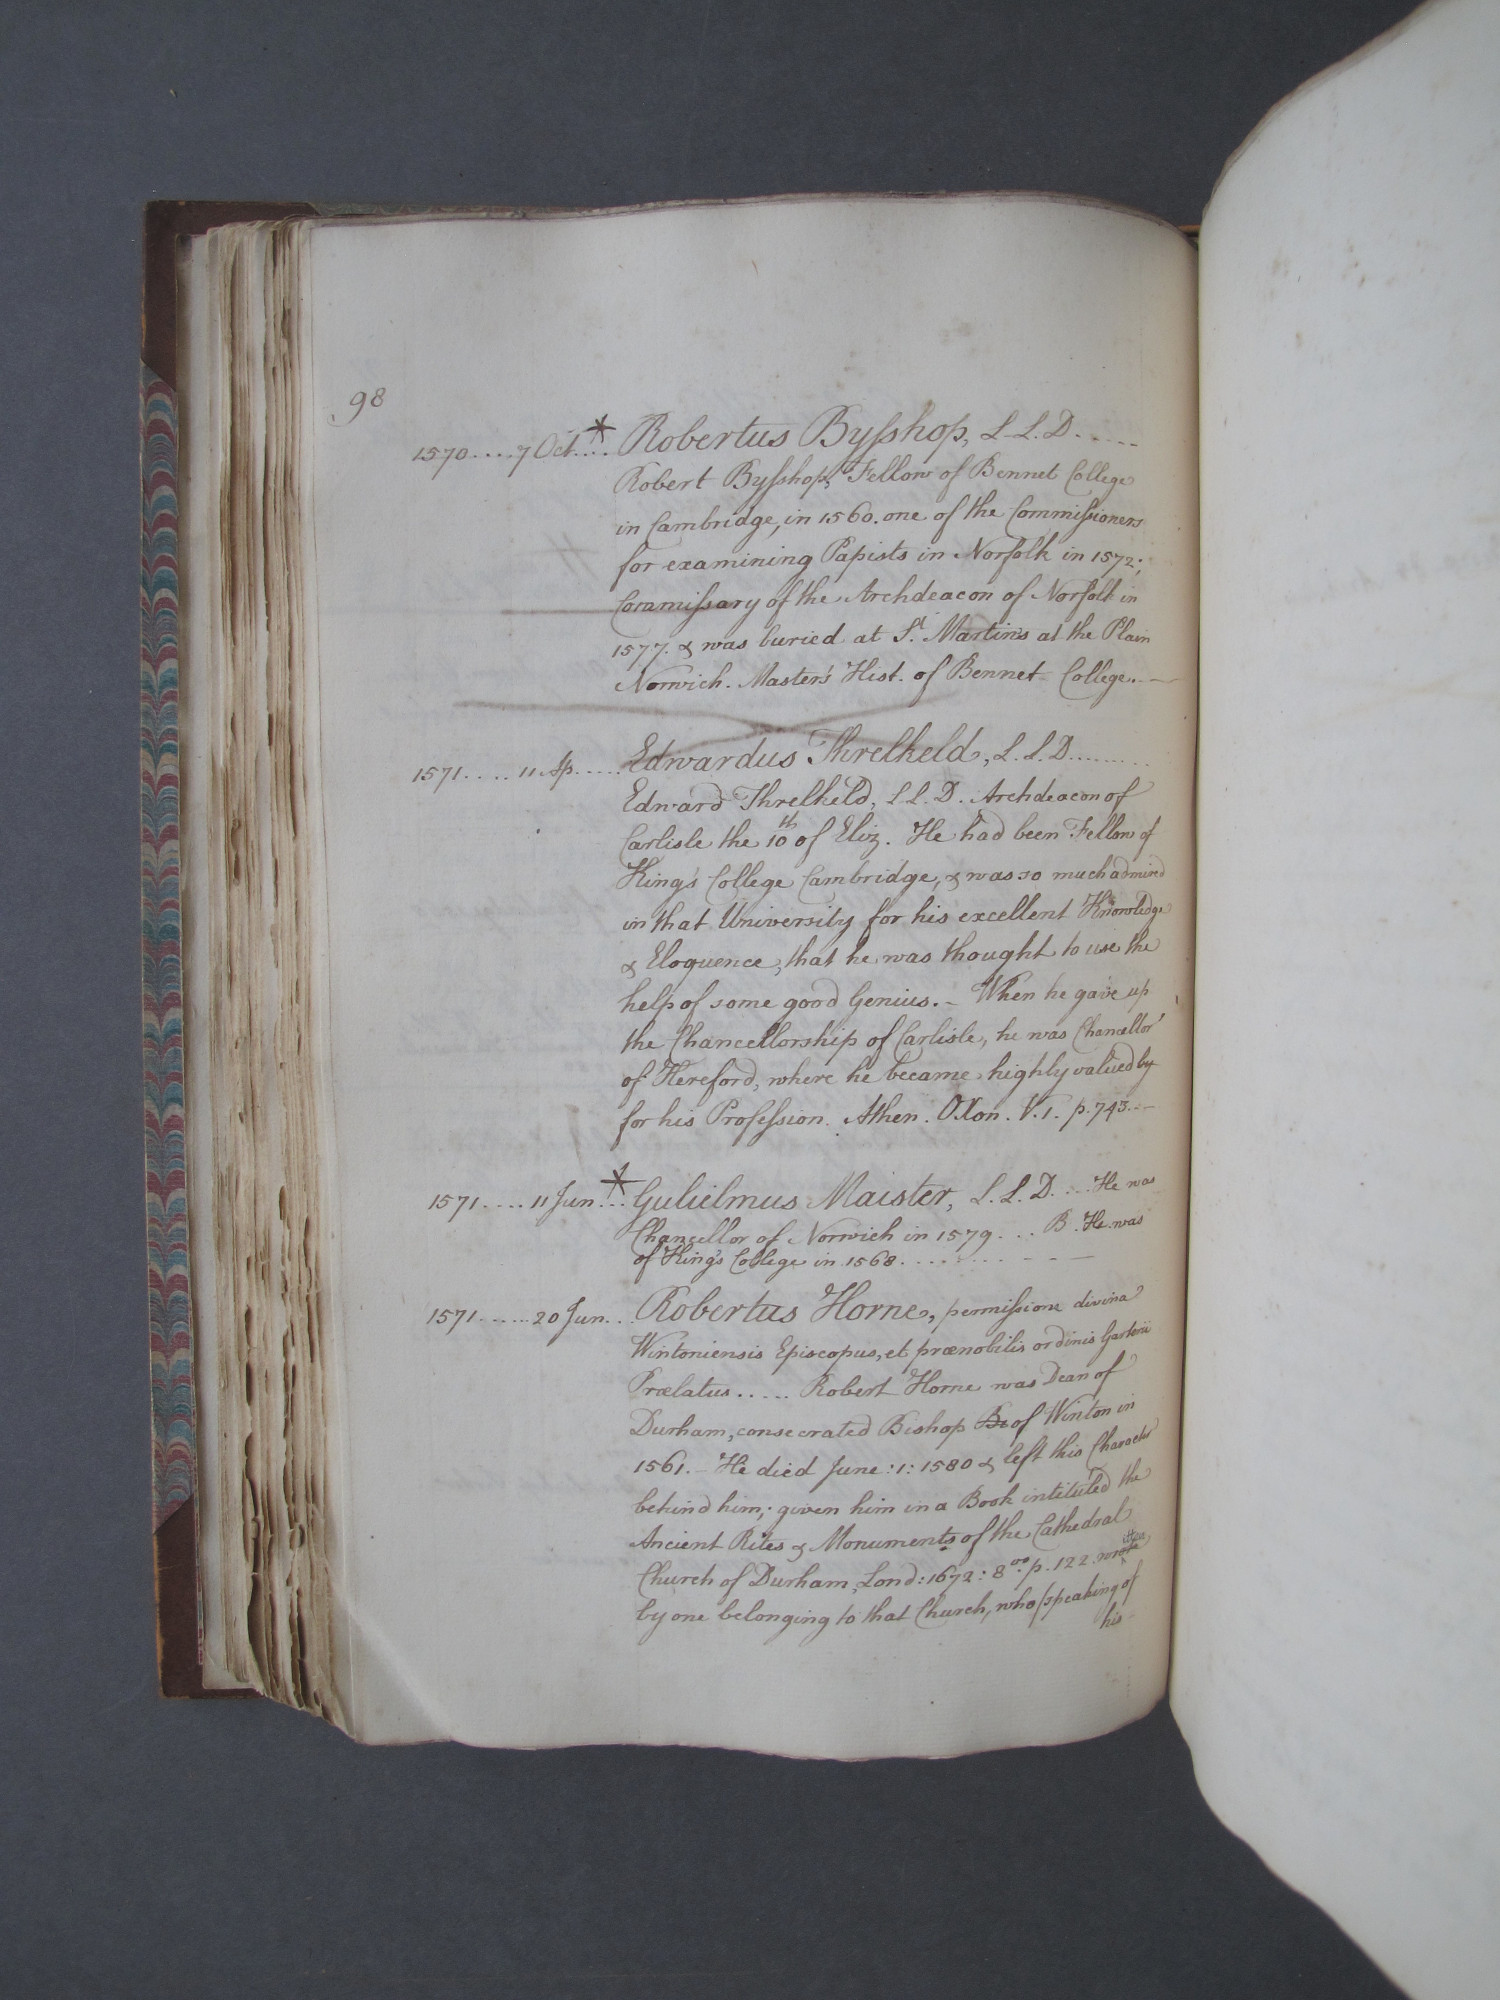 98
1570....7 Oct.* .. Robertus Bysshop, L.L.D.....
Robert Bysshop, Fellow of Bennet College
in Cambridge, in 1560. one of the Commissioners
for examining Papists in Norfolk in 1572;
Commissary of the Archdeacon of Norfolk in
1577. & was buried at St Martin's at the Plain
Norwich. Master's Hist. of Bennet College.--
1571.... 11 Ap..... Edwardus Threlkeld, L.L.D.........
Edward Threlkeld, LL.D. Archdeacon of
Carlisle the 10th of Eliz. He had been Fellow of
King's College Cambridge, & was so much admired
in that University for his excellent Knowledge
& Eloquence, that he was thought to use the
help of some good Genius.- When he gave up
the Chancellorship of Carlisle, he was Chancellor
of Hereford, where he became highly valued by
for his Profession. Athen. Oxon. V.1. p.743.--
1571.... 11 Jun.* .. Gulielmus Maister, L.L.D....He was
Chancellor of Norwich in 1579.... B. He was
of King's College in 1568..........
1571......20 Jun... Robertus Horne, permissione divina
Wintoniensis Episcopus, et prænobilis ordinis Garterii
Prælatus..... Robert Horne was Dean of
Durham, consecrated Bishop Bi of Winton in
1561.- He died June:1:1580 & left this Character
behind him; given him in a Book intituled the
Ancient Rites & Monuments of the Cathedral
Church of Durham, Lond:1672: 8vo. p.122. written
by one belonging to that Church, who (speaking of
his